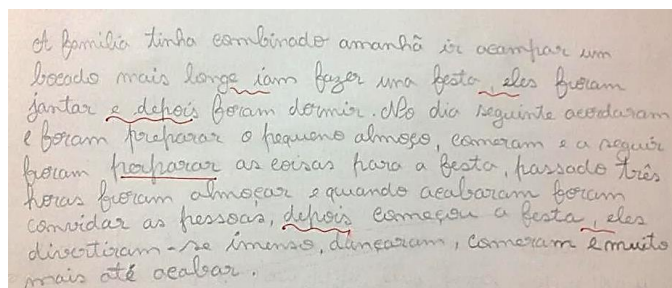 A família tinha combinado amanhã ir acampar um
bocado mais longe iam fazer uma festa, eles foram
jantar e depois foram dormir. No dia seguinte acordaram
e foram preparar o pequeno almoço, comeram e a seguir
foram perparar as coisas para a festa, passado três
horas foram almoçar e quando acabaram foram
convidar as pessoas, depois começou a festa, eles
divertiram-se imenso, dançaram, comeram e muito
mais até acabar.